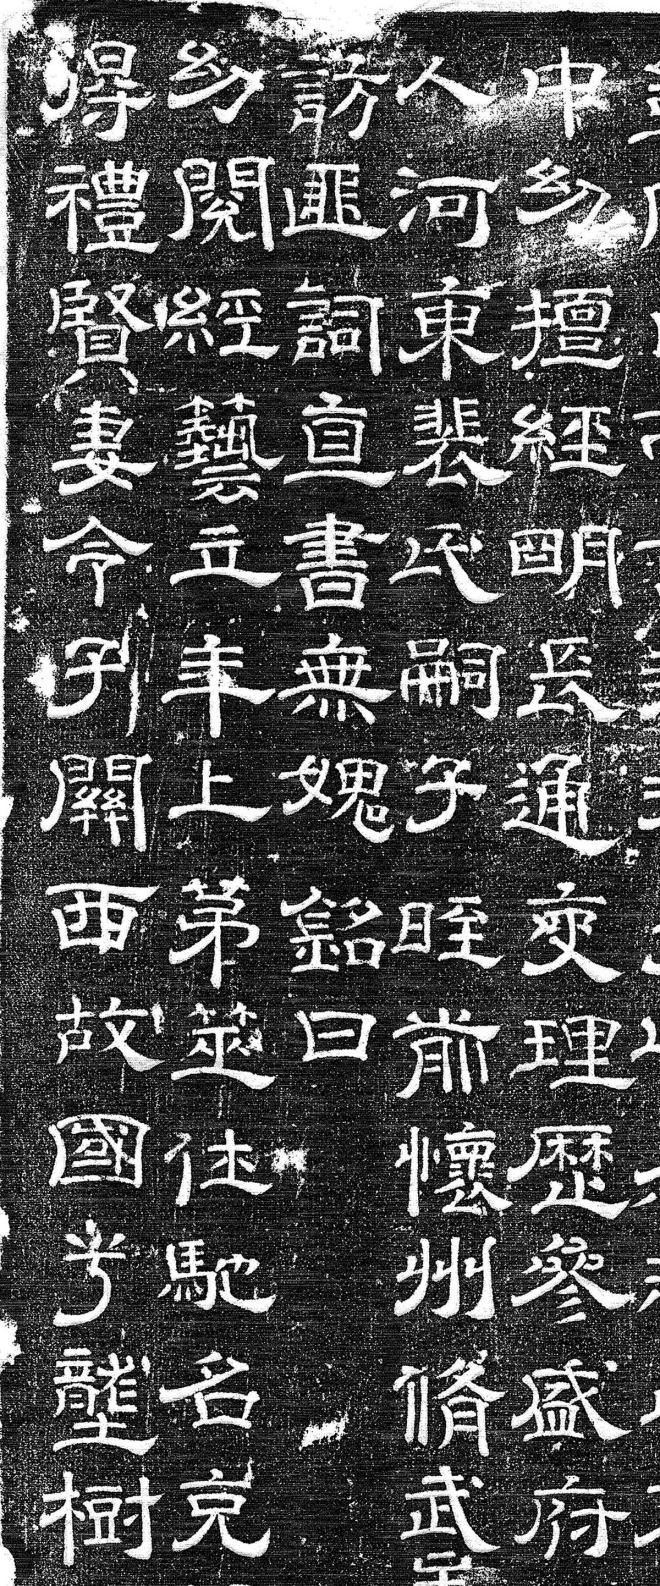 中幼擅經明長通爻理歷參盛府
人河東裴氏嗣子晊前懷州脩武
訪匪詞直書無媿銘曰
幼閱經藝立年上第筮仕馳名克
得禮賢妻令子關西故國兮壟樹